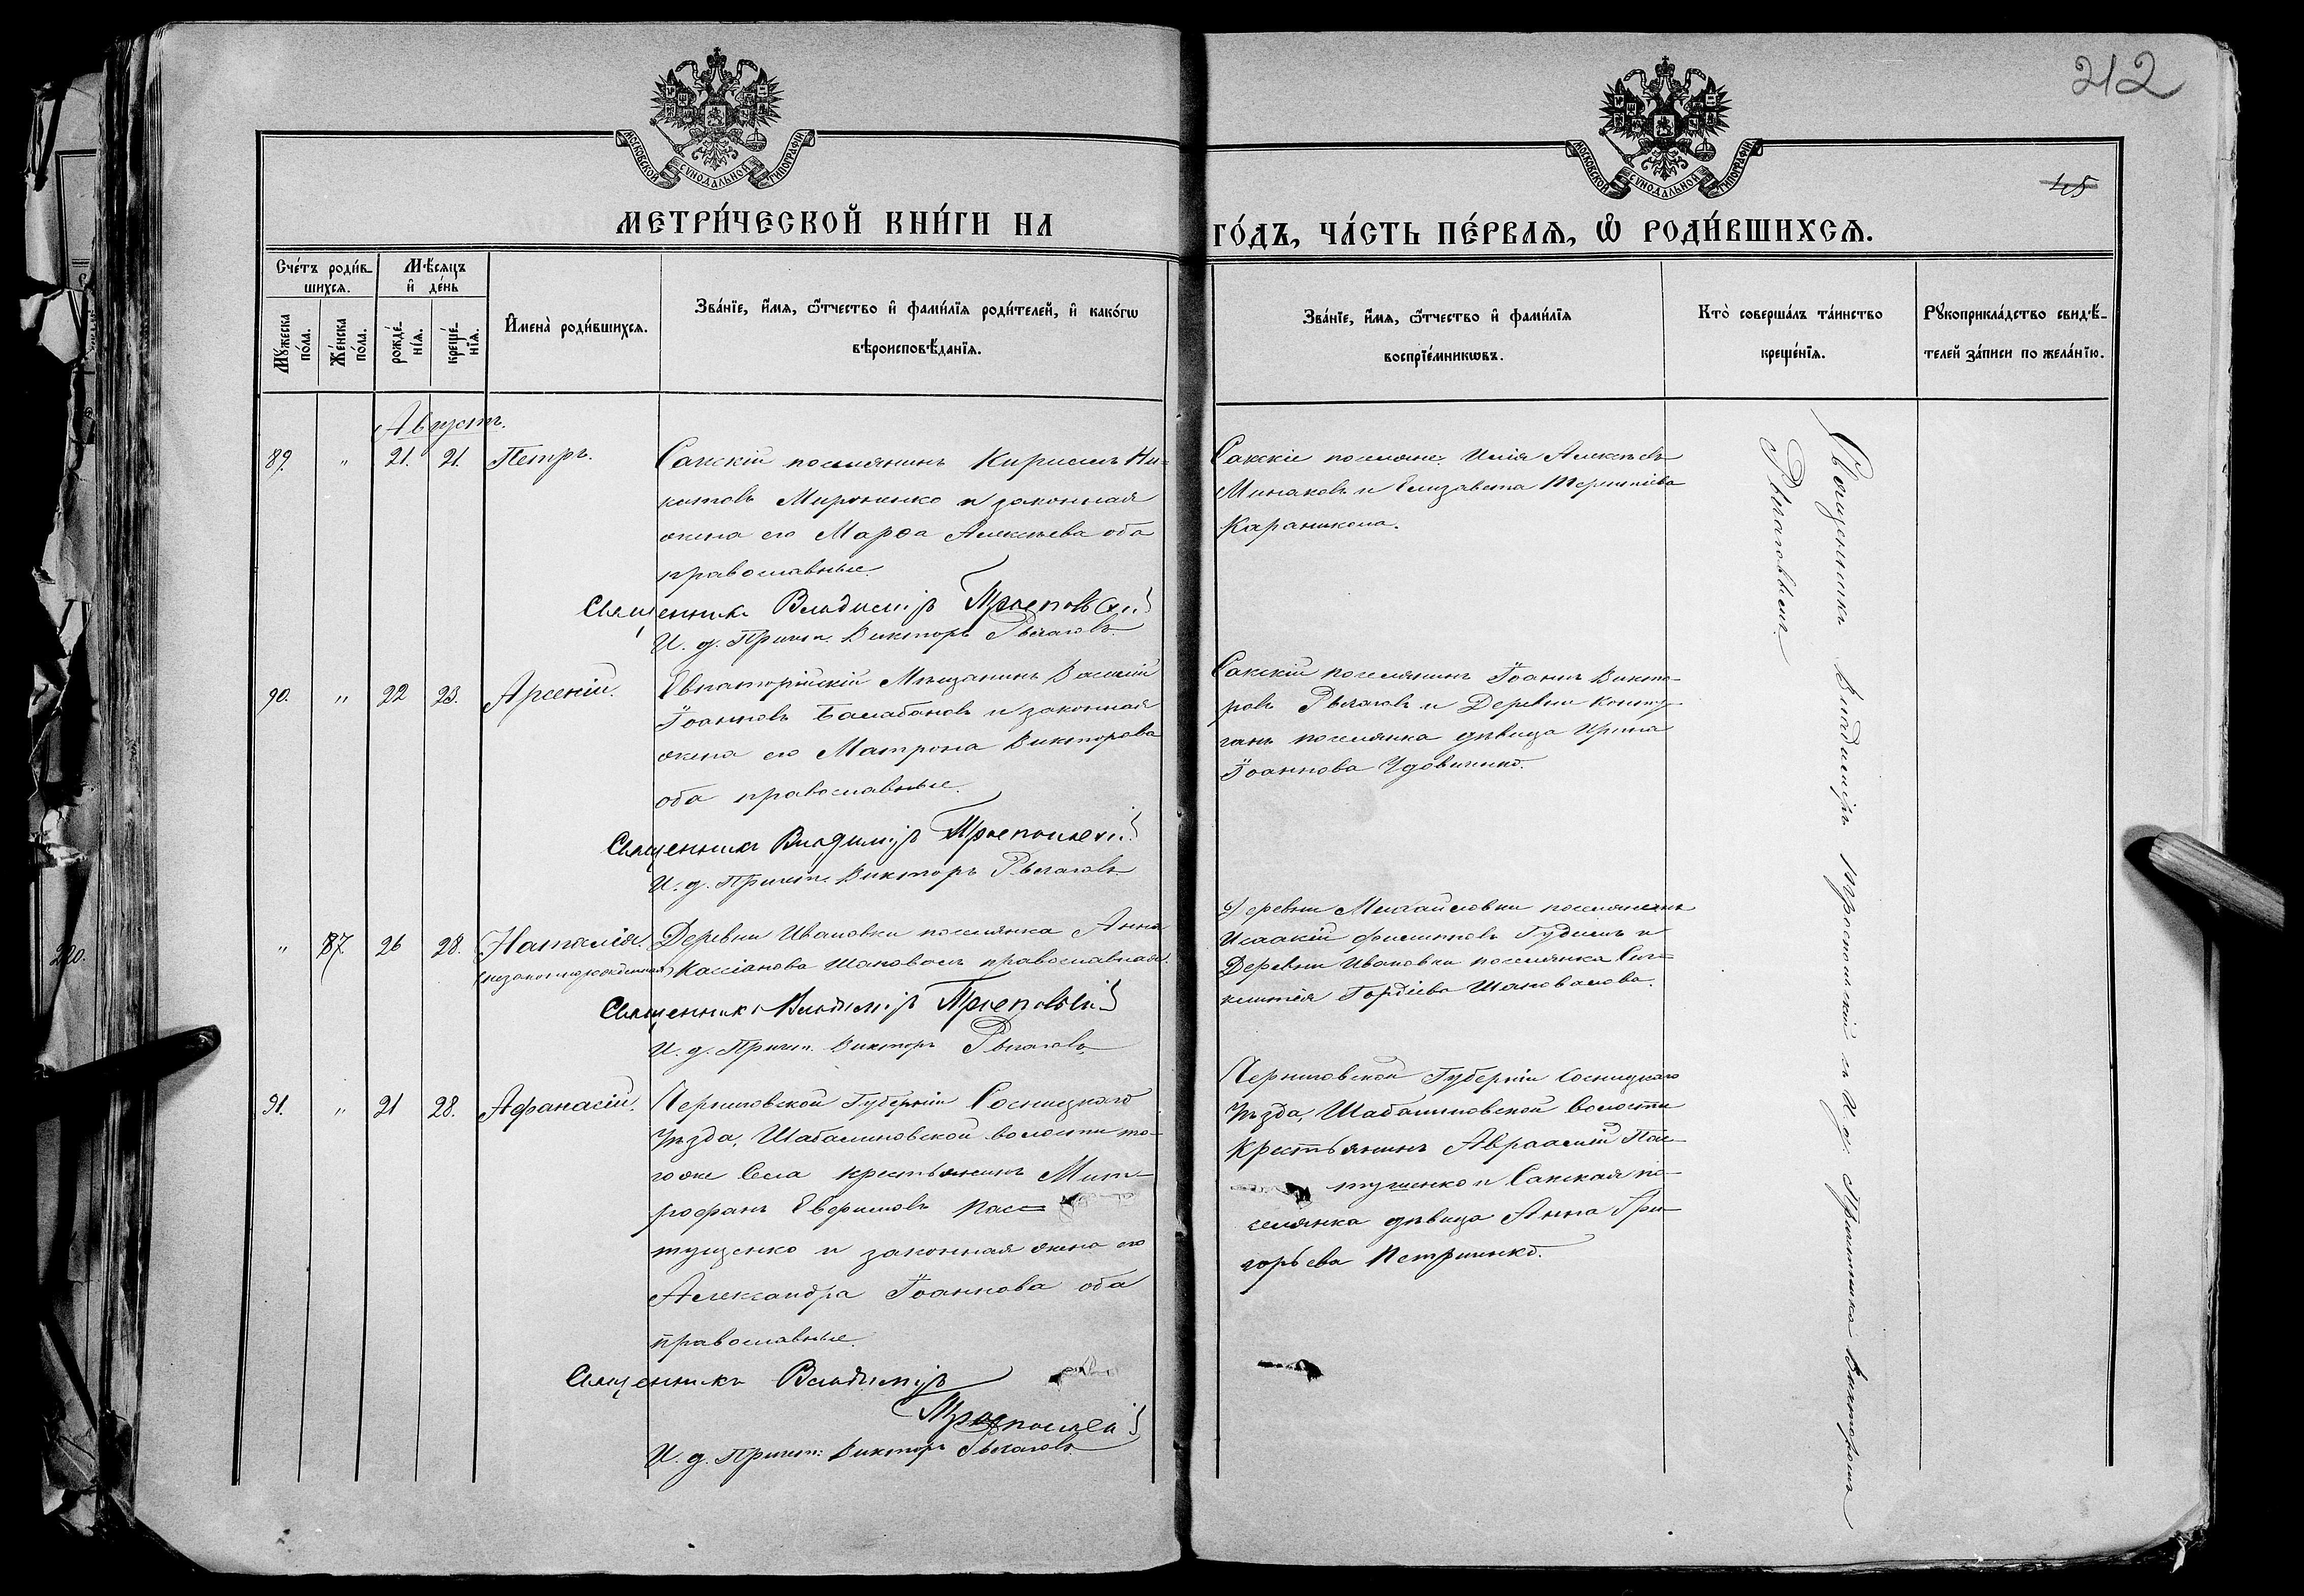 212
45
МОСКОВСКОЙ СѴНОДАЛЬНОЙ ТИПОГРАФІИ
МОСКОВСКОЙ СѴНОДАЛЬНОЙ ТИПОГРАФІИ
МЕТРИ́ЧЕСКОЙ КНИ́ГИ НА
ГО́ДЪ, ЧА́СТЬ ПЕ́РВАѦ, Ѡ҆ РОДИ́ВШИХСѦ.
Сче́тъ роди́в-
шихсѧ.
Мѣ́сѧцъ
и҆ де́нь
Мꙋ́жеска
по́ла.
Же́нска
по́ла.
рожде́-
нїѧ.
креще́-
нїѧ.
И҆мена̀ роди́вшихсѧ.
Зва́нїе, и҆́мѧ, ѻ҆́тчество и҆ фами́лїѧ роди́телей, и҆ како́гѡ
вѣроисповѣ́данїѧ.
Зва́нїе, и҆́мѧ, ѻ҆́тчество и҆ фами́лїѧ
воспрїе́мникѡвъ.
Кто̀ соверша́лъ та́инство
креще́нїѧ.
Рꙋкоприкла́дство свидѣ́-
телей за́писи по жела́нїю.
Августъ.
89. " 21. 21. Петръ.
Сакскій поселянинъ Кириллъ Ни-
китовъ Мироненко и законная
жена его Марѳа Алексѣева оба
православные.
Священникъ Владиміръ
И. д. Причет. Викторъ Рычаговъ
Сакскіе поселяне: Илія Алексѣевъ
Минаковъ и Елизавета Терентіева
90. " 22 23. Арсеній.
Евпаторійскій Мѣщанинъ Василій
Іоанновъ Балабановъ и законная
жена его Матрона Викторова
оба православные.
Священникъ Владиміръ
И. д. Причет. Викторъ Рычаговъ
Сакскій поселянинъ Іоаннъ Викто-
ровъ Рычаговъ и Деревни Конту-
ганъ поселянка дѣвица Ирина
Іоаннова Удовиченко.
" 87. 26 28. Наталія.
(незаконнорожденная)
Деревни Ивановки поселянка Анна
Кассіанова Шаповалъ православная.
Священникъ Владиміръ
И. д. Причет. Викторъ Рычаговъ
Деревни Михайловки поселянинъ
Исаакій Филипповъ и
Деревни Ивановки поселянка Син-
клитія Гордіева Шаповалова.
91. " 21 28. Афанасій.
Черниговской Губерніи Сосницкаго
Уѣзда, Шабалиновской волости то-
гоже Села крестьянинъ Мит-
рофанъ Евфимовъ Пас=
тущенко и законная жена его
Александра Іоаннова оба
православные.
Священникъ Владиміръ
И. д. Причет: Викторъ Рычаговъ
Черниговской Губерніи Сосницкаго
Уѣзда, Шабалиновской Волости
Крестьянинъ Авраамій Пас-
тушенко и Сакская по-
селянка дѣвица Анна Гри-
горьева Петриченко.
Священникъ Владиміръ съ И. д. Причетника Викторомъ
Рычаговымъ.
220.